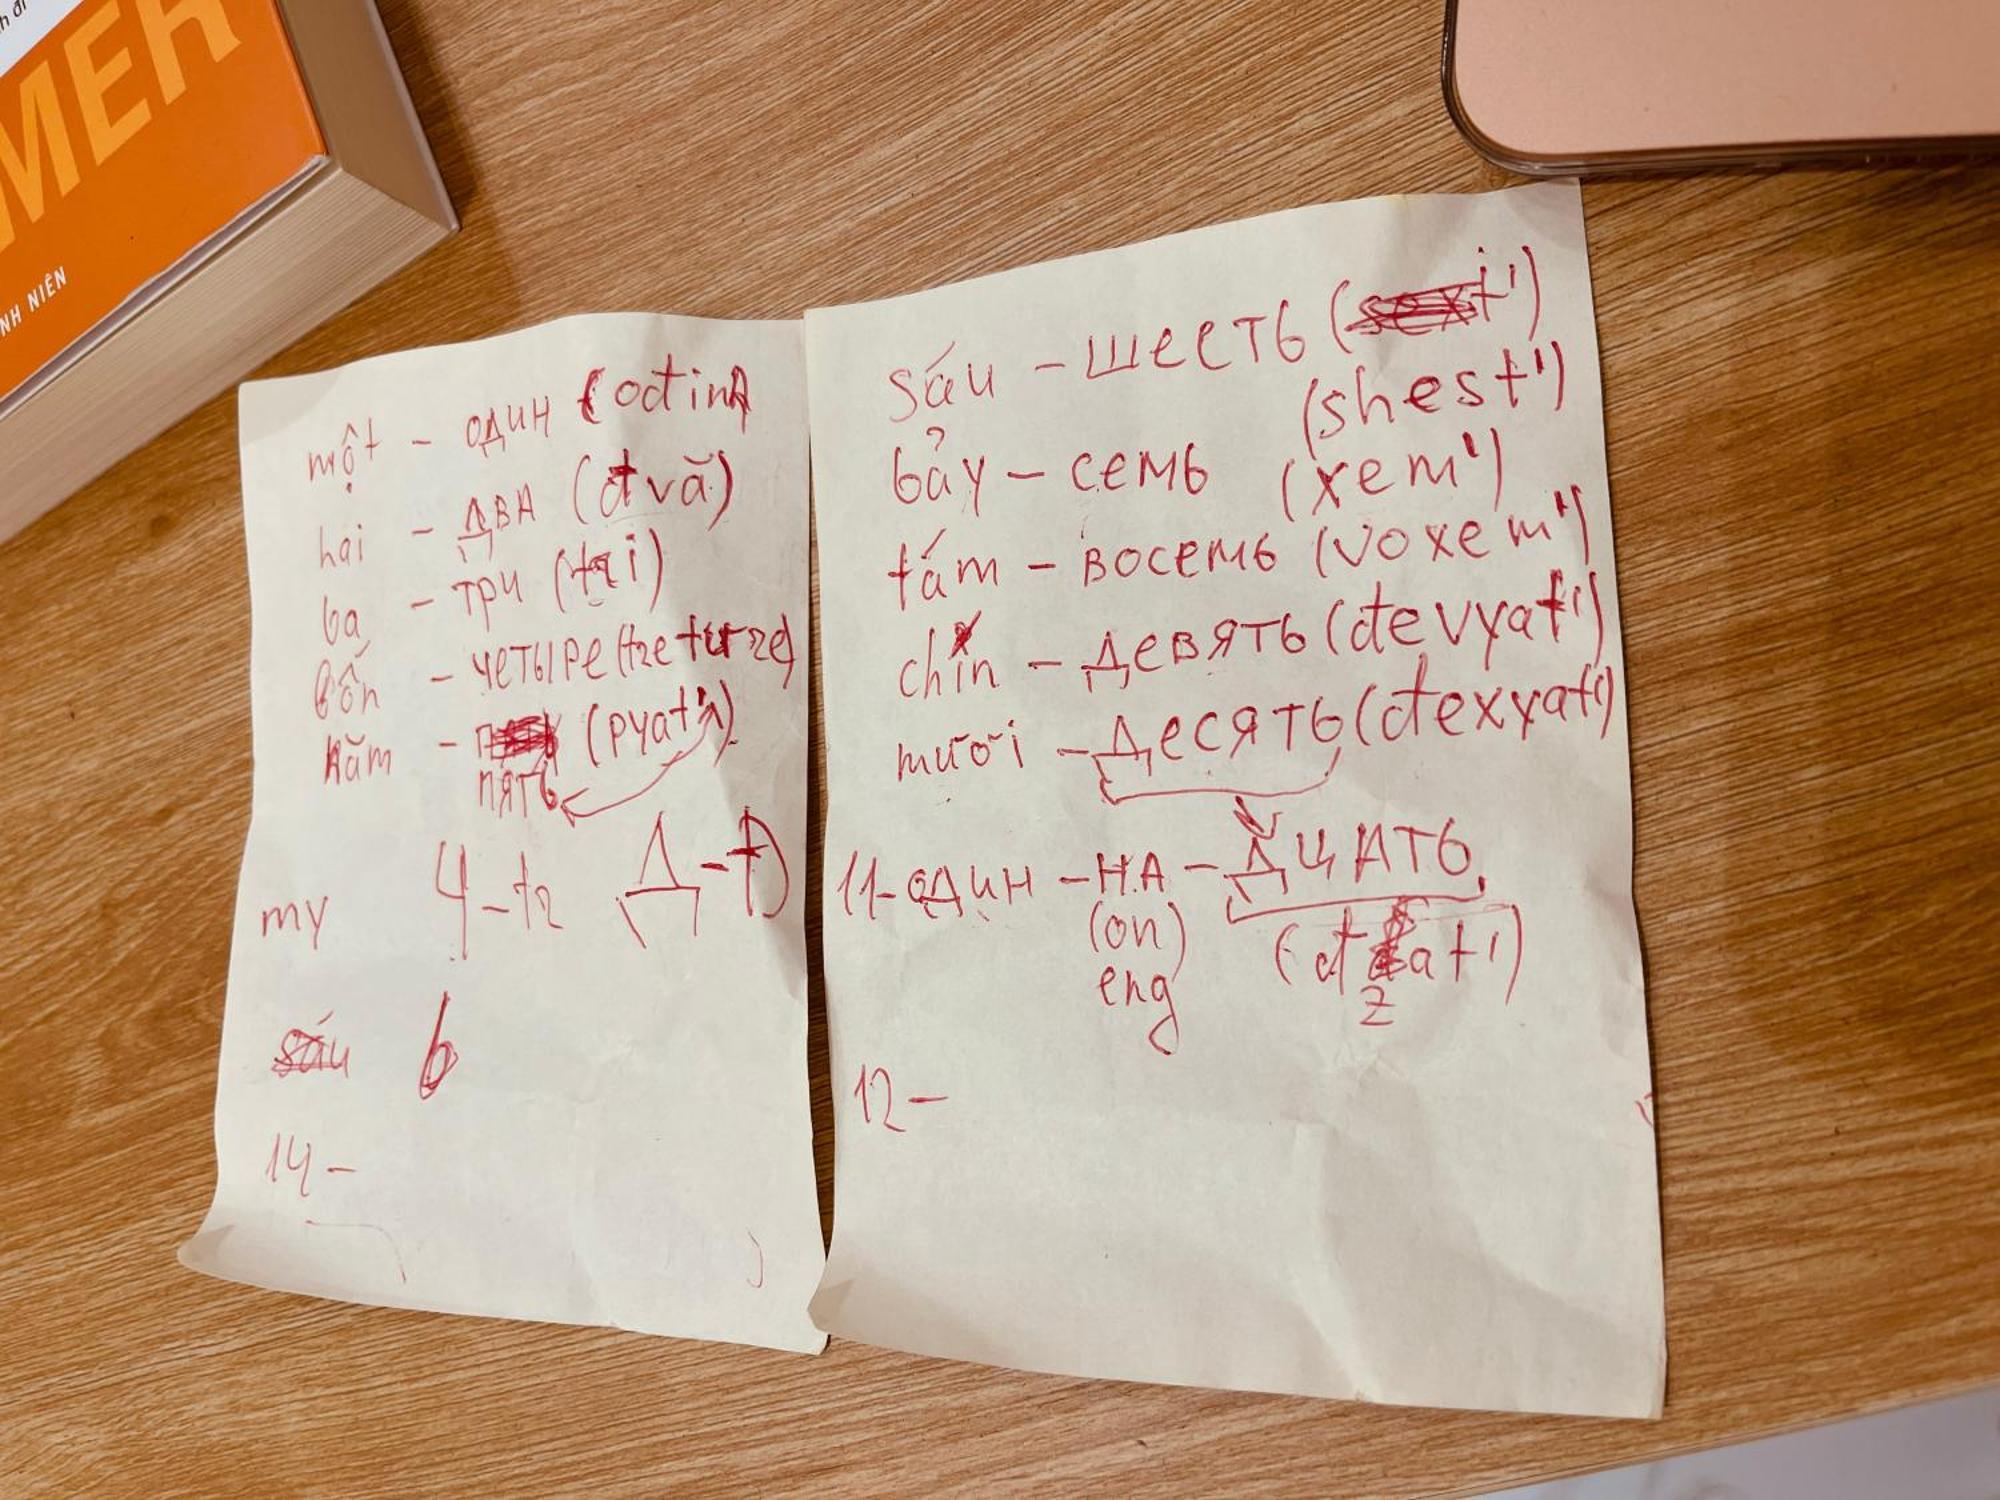 MER
NH NIÊN
một - один (ođin)
hai - два (đvă)
ba - три (tri)
bốn - четыре
năm - (pyat')
пять
my ч-tr Д-Đ
sáu 6
14-
sáu - шесть
(shest')
bảy - семь (xem')
tám - восемь (voxem')
chín - девять (đevyat')
mười - десять (đexyat')
11- один - на - дцать
(on)
eng
z
12-